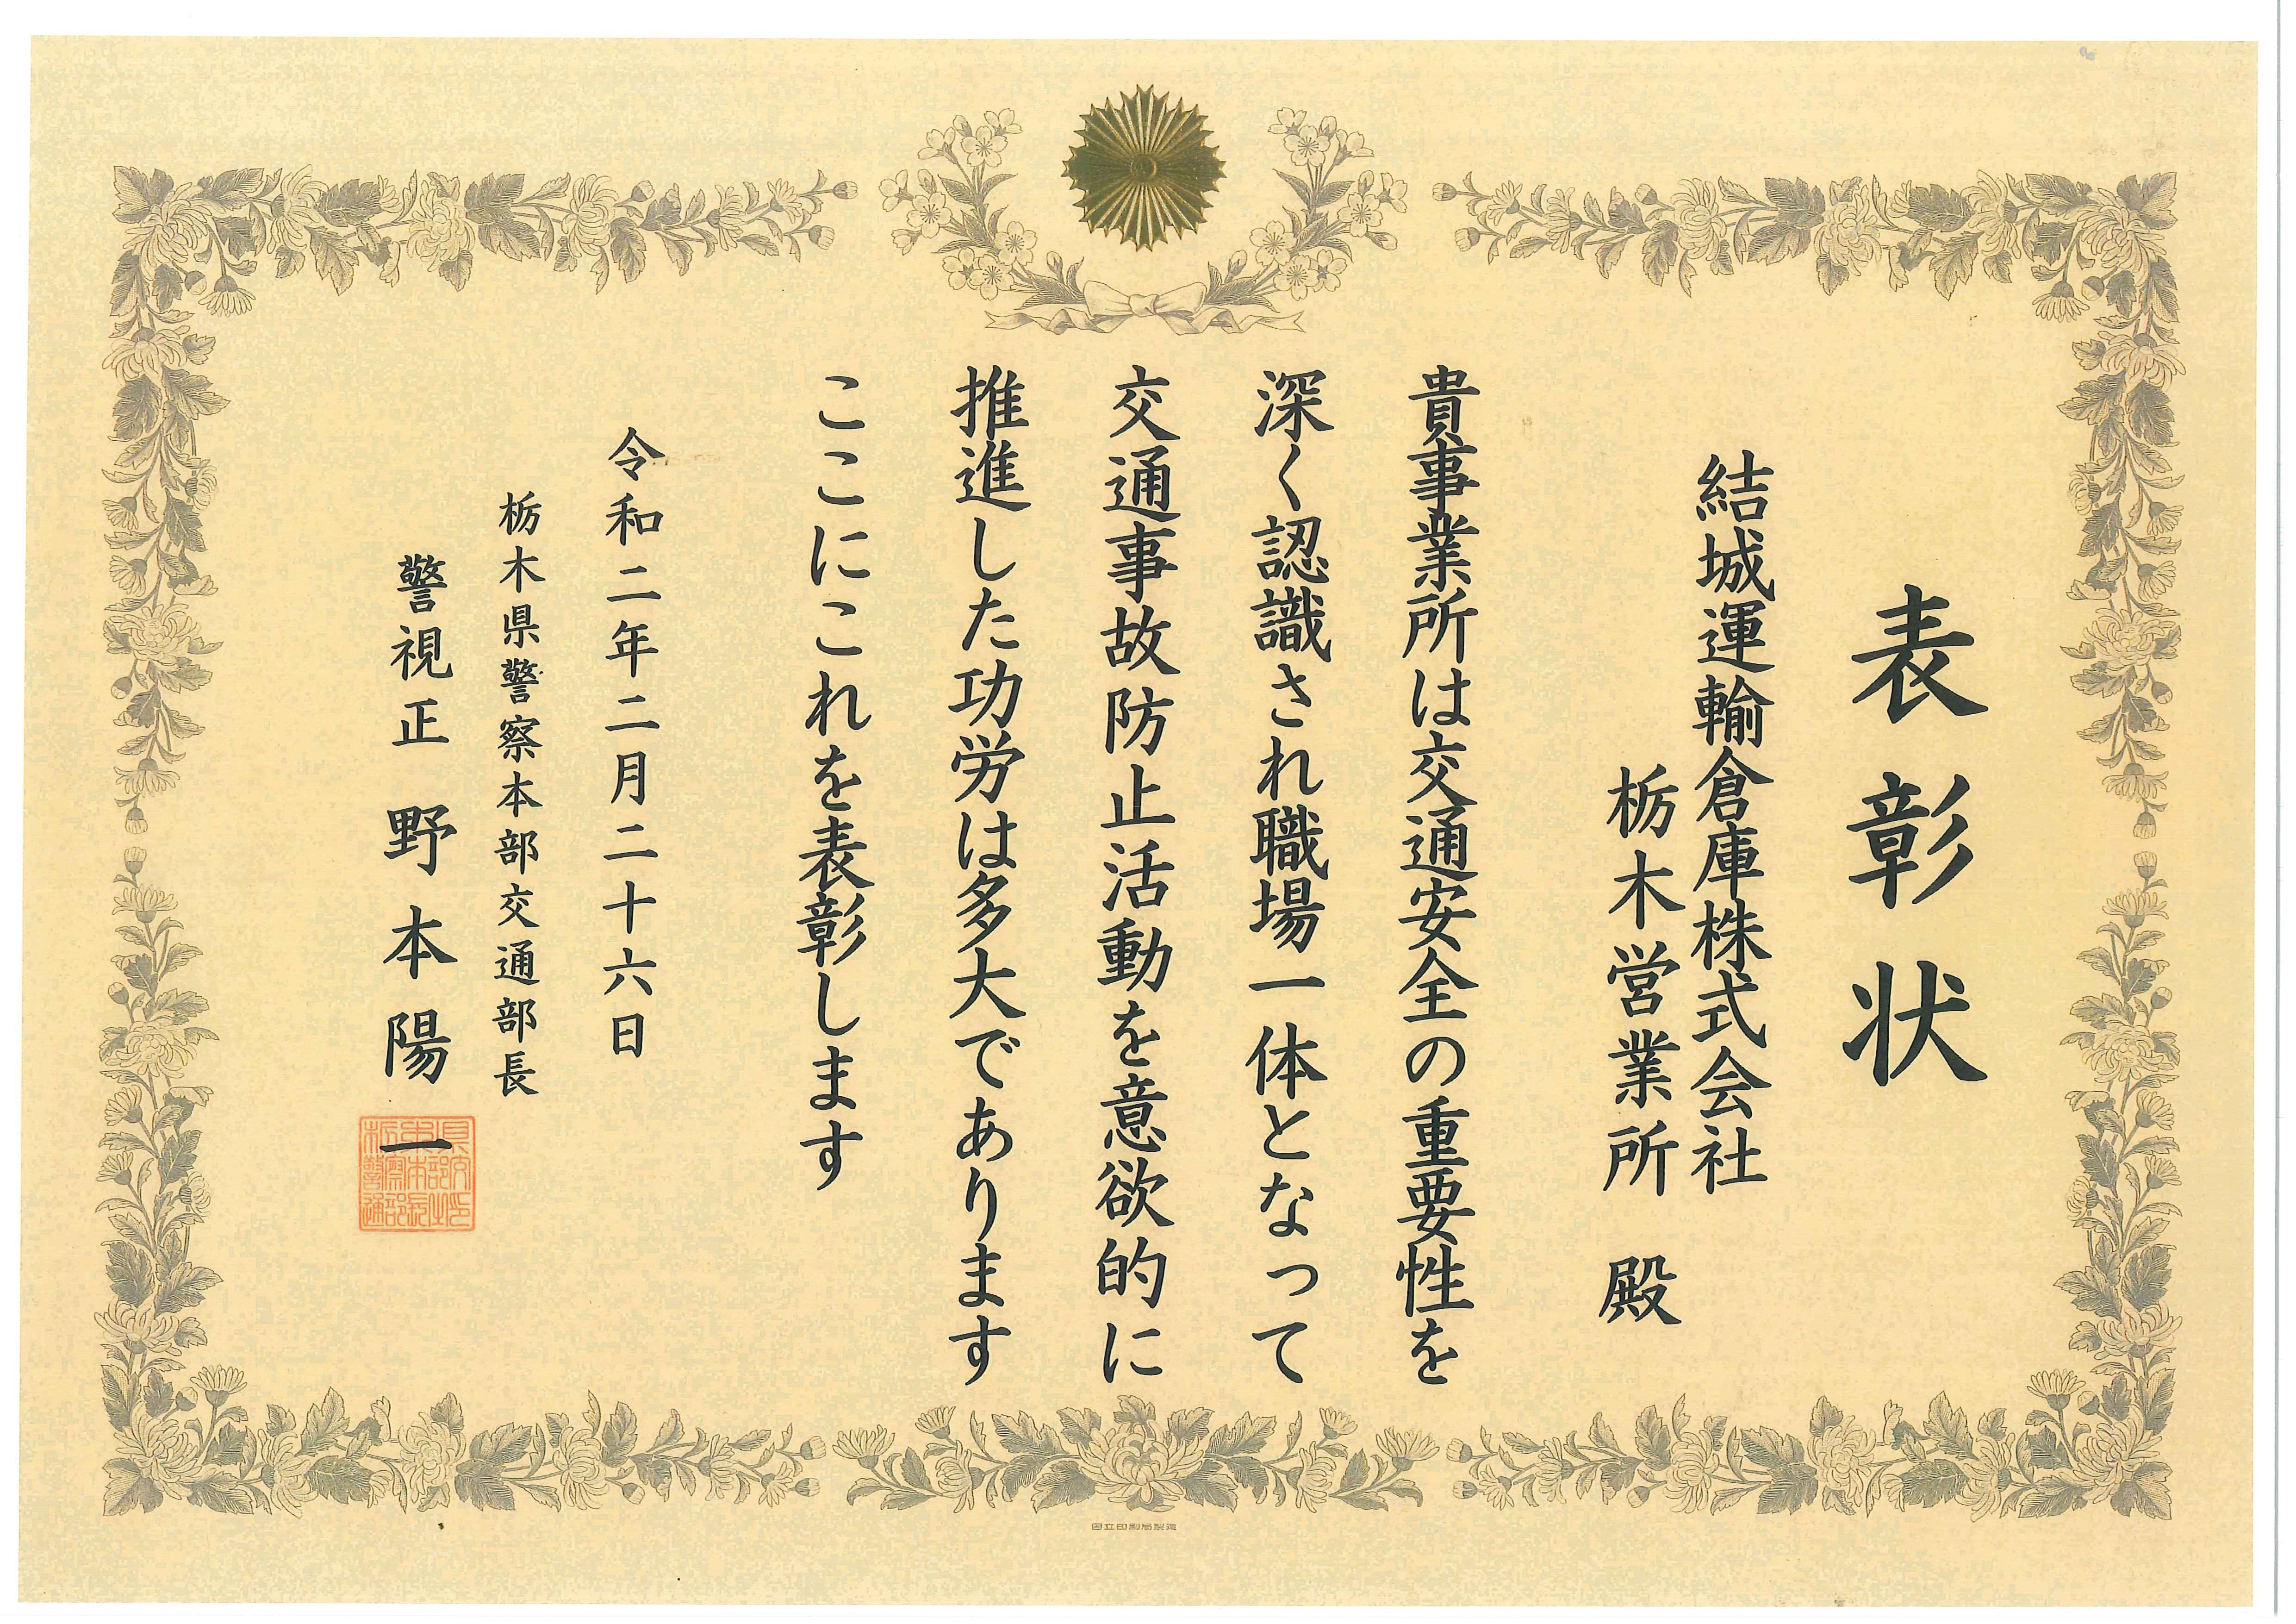 表彰状
結城運輸倉庫株式会社
栃木営業所 殿
貴事業所は交通安全の重要性を
深く認識され職場一体となって
交通事故防止活動を意欲的に
推進した功労は多大であります
ここにこれを表彰します
令和二年二月二十六日
栃木県警察本部交通部長
警視正 野本陽一
国立印刷局製造